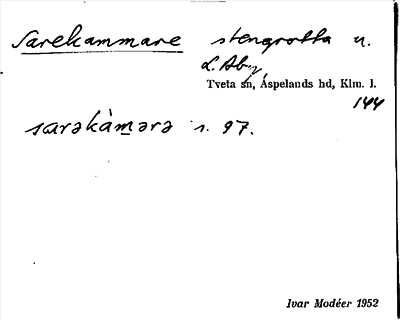 Sarekammare stengrotta u.
L. Åby,
Tveta sn, Aspelands hd, Klm. l.
144
sarəkàm̲ərə s. 97.
Ivar Modéer 1952